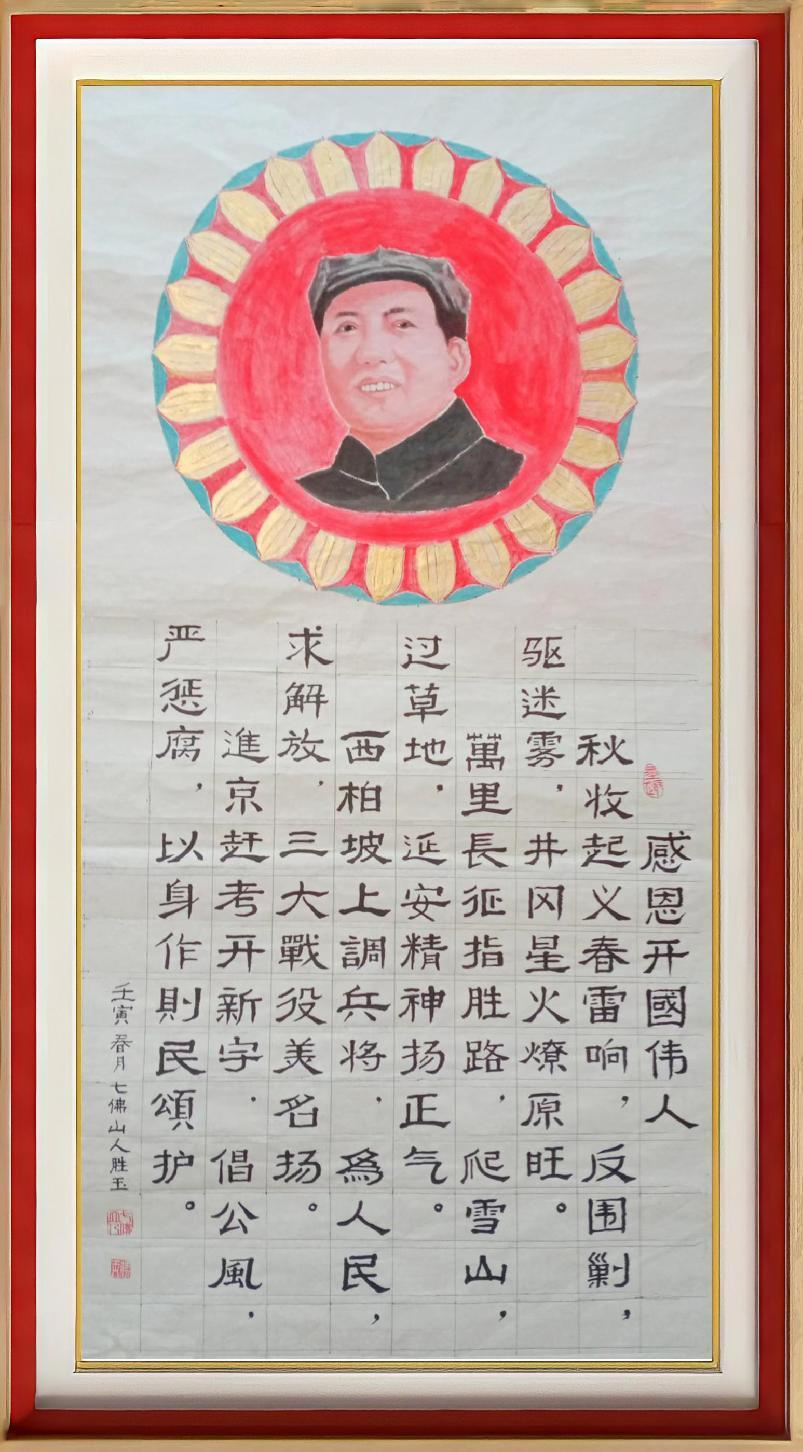 感恩开國伟人
秋收起义春雷响，反围剿，
驱迷雾，井冈星火燎原旺。
萬里長征指胜路，爬雪山，
过草地，延安精神扬正气。
西柏坡上調兵将，爲人民，
求解放，三大戰役美名扬。
進京赶考开新字，倡公風，
严惩腐，以身作則民頌护。
壬寅春月七佛山人胜玉